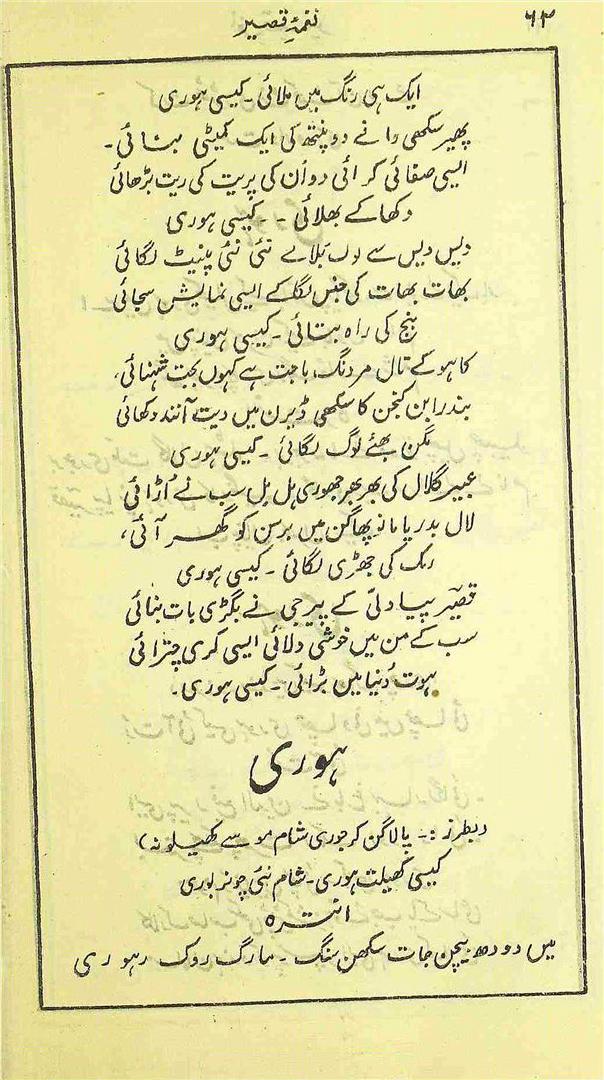 ۶۲
نغمۂ قصیر
ایک ہی رنگ میں ملائی ۔ کیسی ہوری
پھیر سکھی وا نے دو پنتھ کی ایک کمیٹی بنائی ۔
ایسی صفائی کرائی دو اُن کی پریت کی ریت بڑھائی
دکھا کے بھلائی ۔ ۔ کیسی ہوری
دیس دیس سے لوگ بلائے نئی نئی پینٹ لگائی
بھات بھات کی جنس لگا کے ایسی نمایش سجائی
بنج کی راہ بتائی ۔ کیسی ہوری
کاہو کے تال مردنگ باجت ہے کہوں بجت شہنائی،
بندرابن کنجن کا سکھی ڈیرن میں دیت آنند دکھائی
مگن بھئے لوگ لگائی ۔ کیسی ہوری
عبیر گلال کی بھر بھر جھوری ہل مل سب نے اُڑائی
لال بدریا مانو پھاگن میں برسن کو گھر آئی،
رنگ کی جھڑی لگائی ۔ کیسی ہوری
قصیرؔ پیا دلّی کے پیر جی نے بگڑی بات بنائی
سب کے من میں خوشی دلائی ایسی کری چترائی
ہوت دُنیا میں بڑائی ۔ کیسی ہوری ۔
ہوری
(بطرز :۔ پالاگن کر جوری شام مو سے کھیلو نہ)
کیسی کھیلت ہوری ۔ شام نئی چونر بوری
انترہ
میں دودھ بیچن جات سکھن سنگ ۔ مارگ روک رہو ری